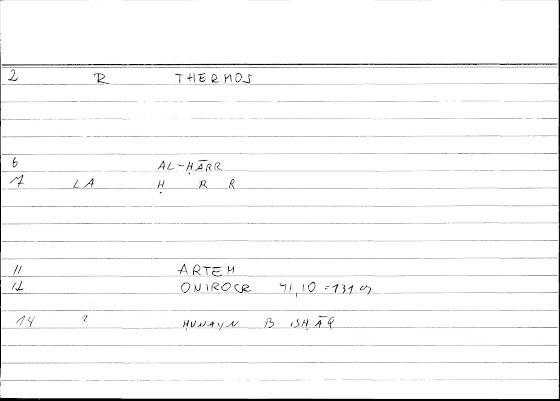 2 R THERMOS
6 AL-ḤĀRR
7 LA Ḥ R R
11 ARTEM
12 ONIROCR 41,10 =
14 ? ḤUNAYN B. ISḤĀQ